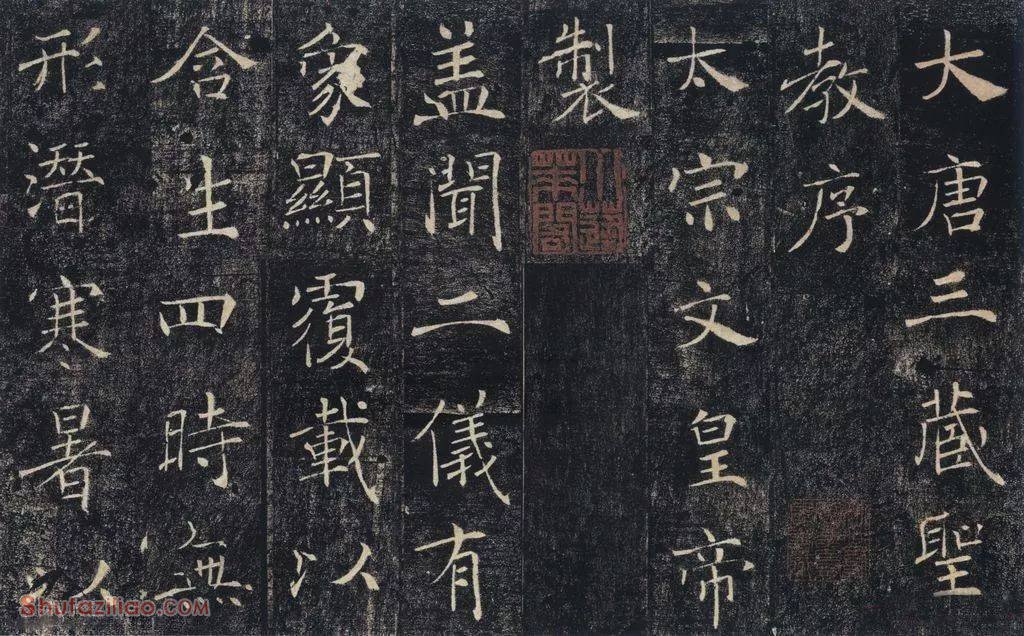 大唐三藏聖
教序
太宗文皇帝
製
盖聞二儀有
象顯覆載以
含生四時無
形潛寒暑以
Shufaziliao.com